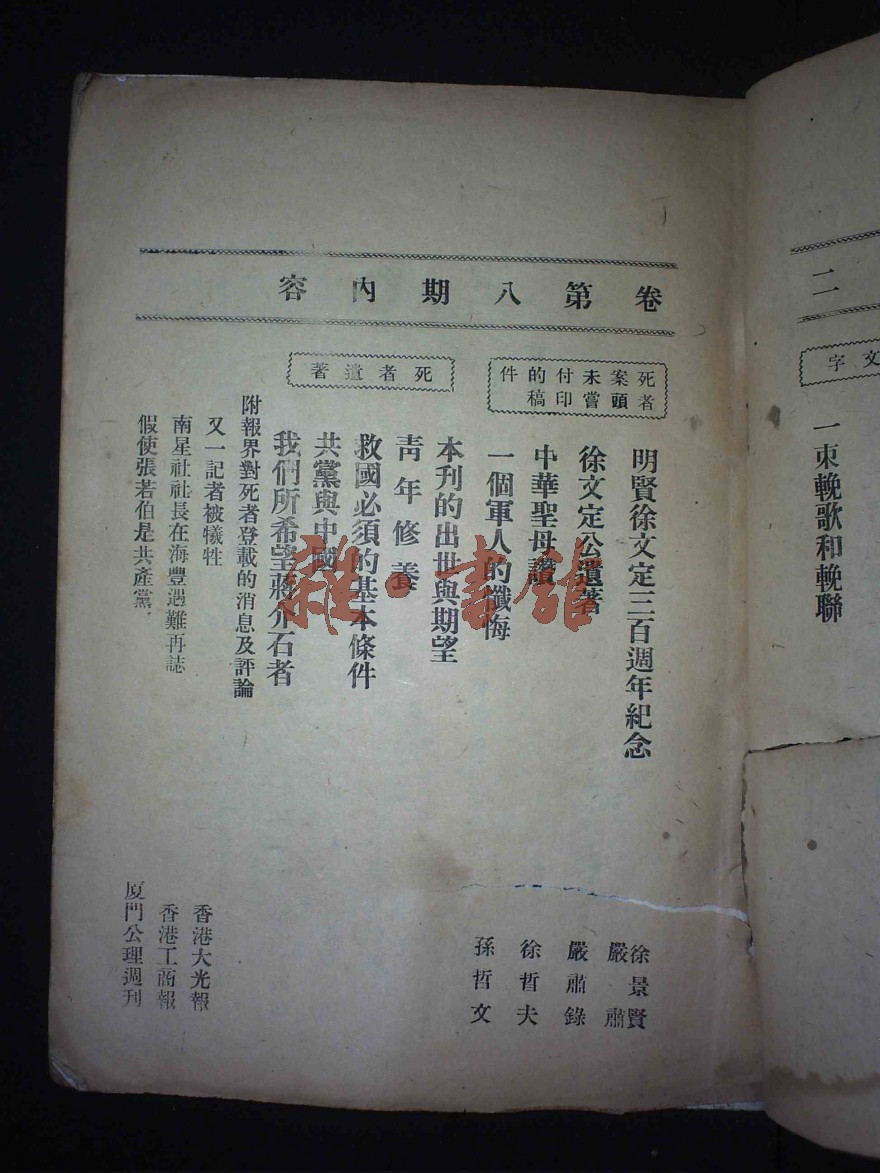 二
文字
一束輓歌和輓聯
卷第八期內容
死者案頭未嘗付印的稿件
明賢徐文定三百週年紀念
徐景賢
嚴肅
徐文定公遺著
嚴肅錄
中華聖母讚
徐哲夫
一個軍人的懺悔
孫哲文
死者遺著
本刊的出世與期望
青年修養
救國必須的基本條件
共黨與中國
我們所希望蔣介石者
附報界對死者登載的消息及評論
又一記者被犧牲
香港大光報
南星社社長在海豐遇難再誌
香港工商報
假使張若伯是共產黨
厦門公理週刊
雜·書館